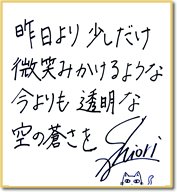 昨日より 少しだけ
微笑みかけるような
今よりも 透明な
空の蒼さを
Shiori